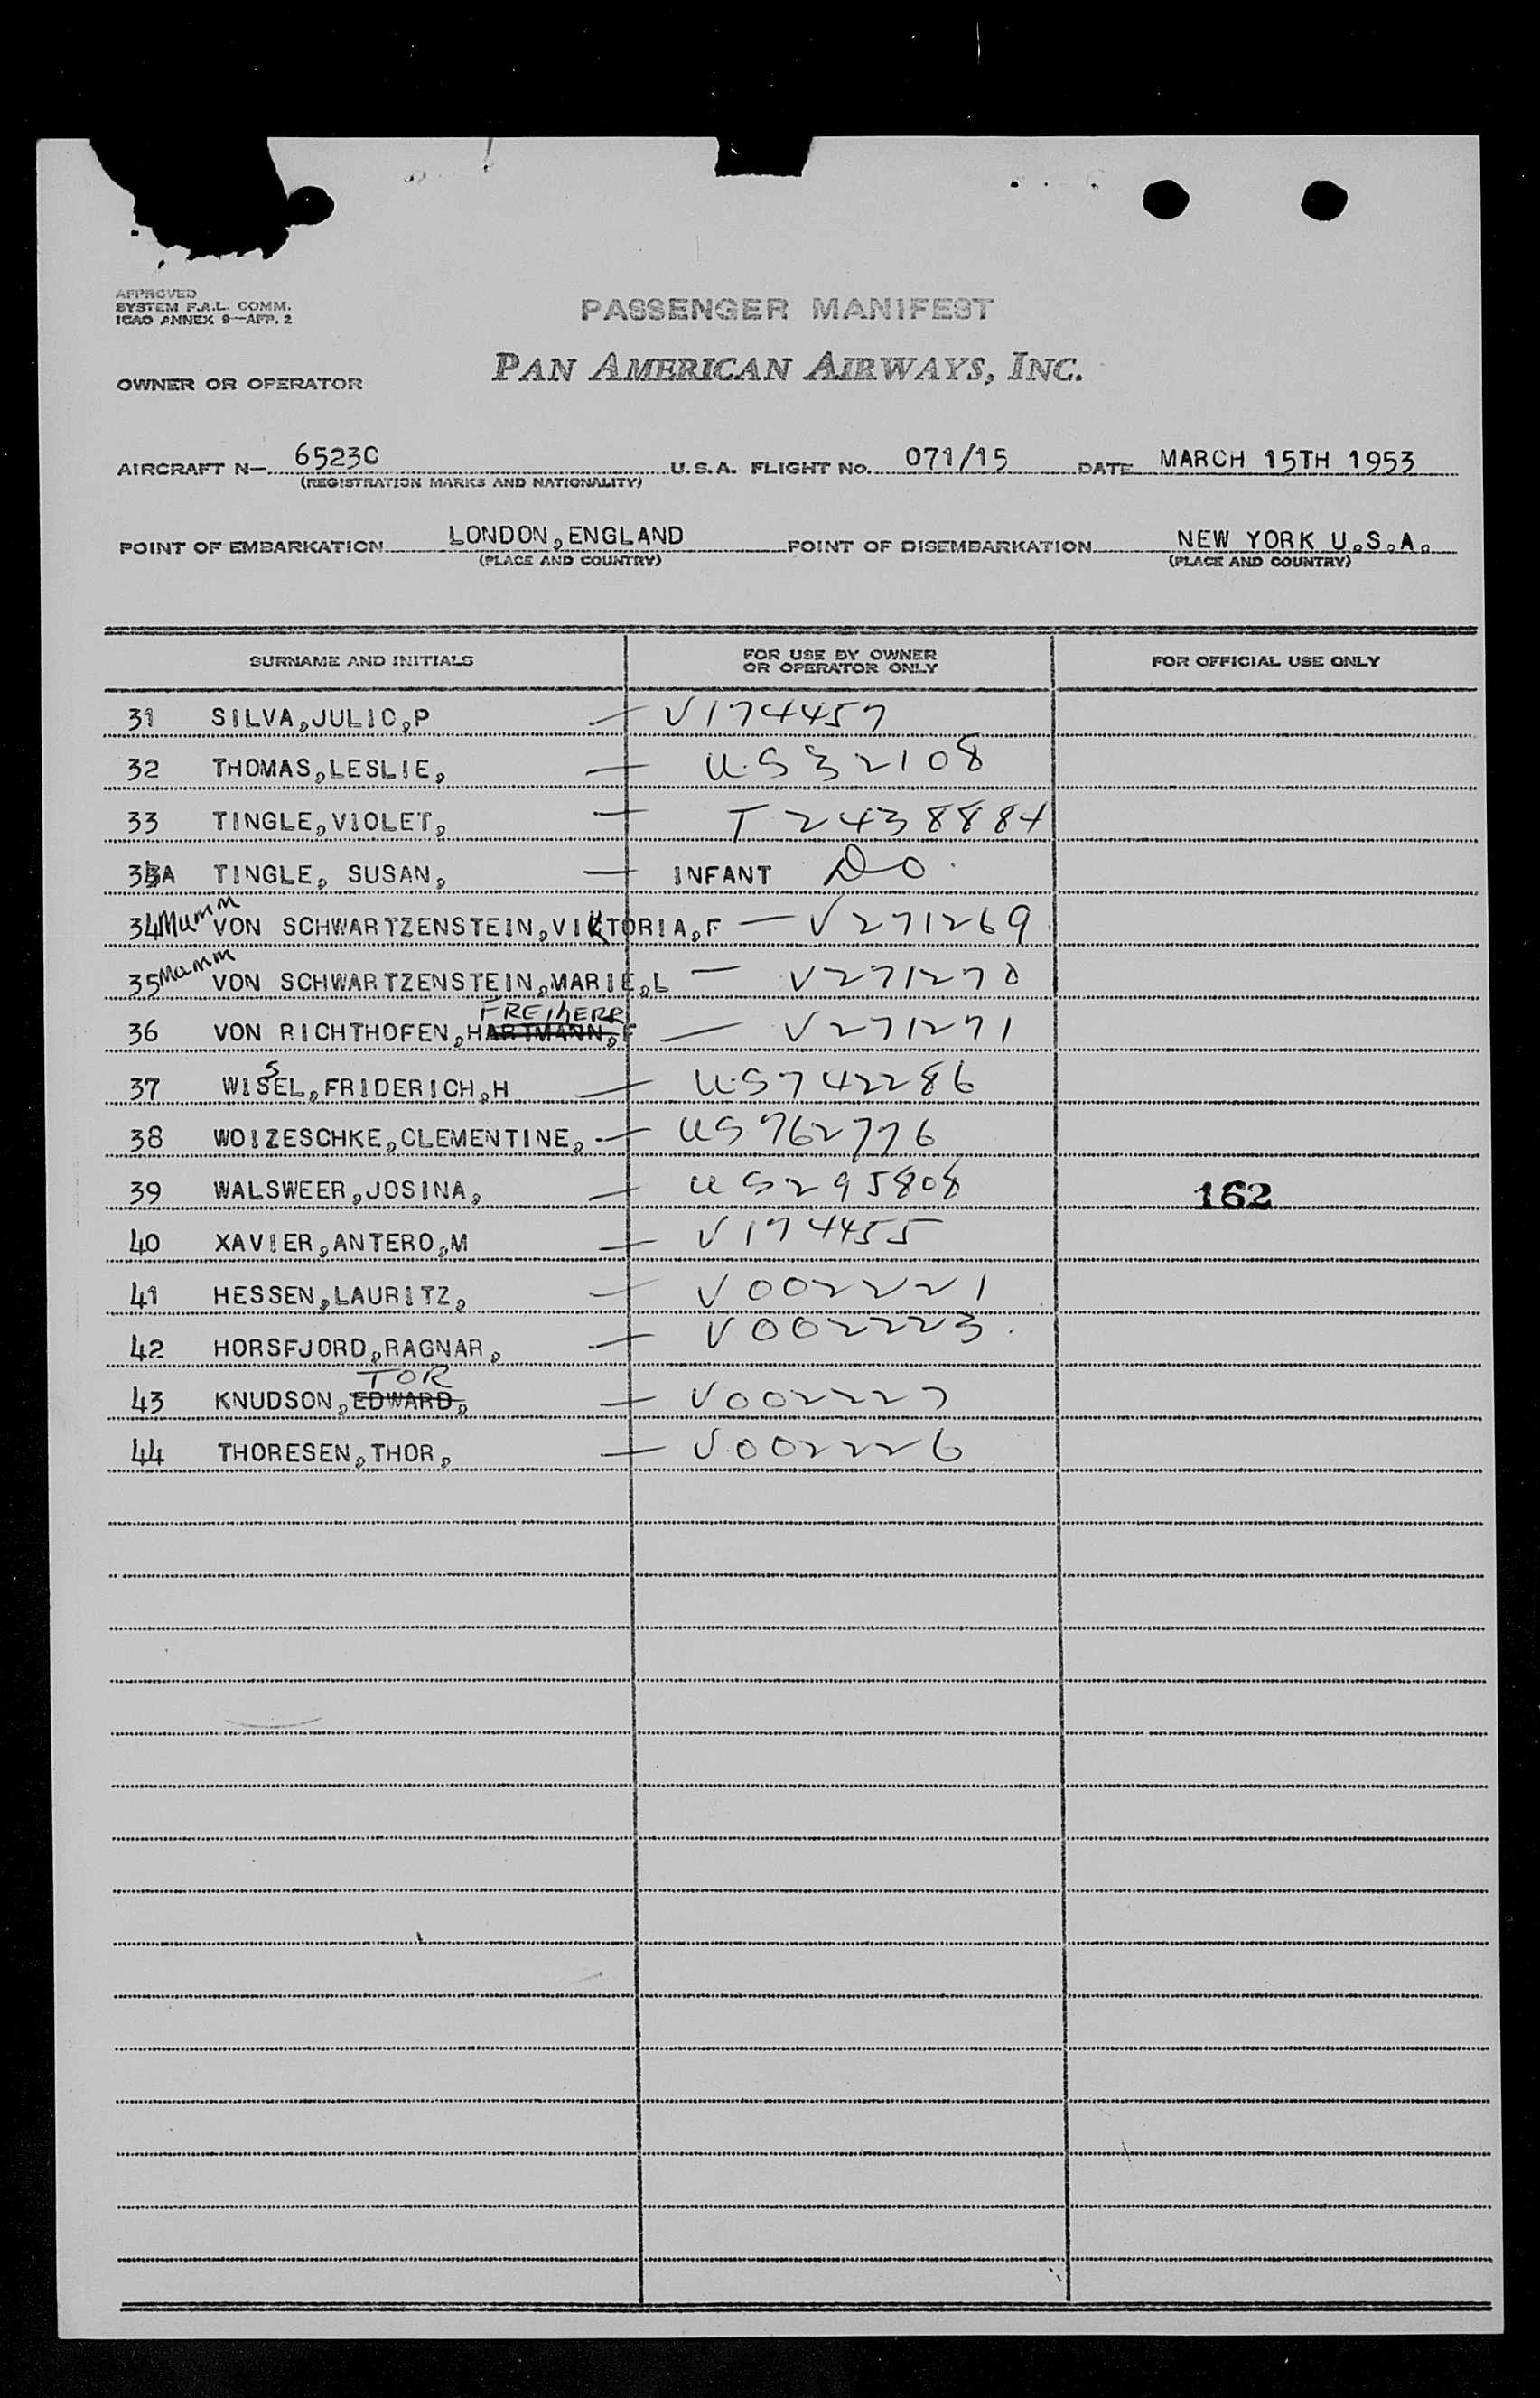 APPROVED
SYSTEM F.A.L. COMM.
ICAO ANNEX 9—APP. 2
PASSENGER MANIFEST
OWNER OR OPERATOR PAN AMERICAN AIRWAYS, INC.
AIRCRAFT N— 6523C U.S.A. FLIGHT No. 071/15 DATE MARCH 15TH 1953
(REGISTRATION MARKS AND NATIONALITY)
POINT OF EMBARKATION LONDON, ENGLAND POINT OF DISEMBARKATION NEW YORK U.S.A.
(PLACE AND COUNTRY) (PLACE AND COUNTRY)
SURNAME AND INITIALS FOR USE BY OWNER OR OPERATOR ONLY FOR OFFICIAL USE ONLY
31 SILVA, JULIO, P — V174457
32 THOMAS, LESLIE, — US32108
33 TINGLE, VIOLET, — T 2438884
33A TINGLE, SUSAN, — INFANT Do.
34 Mumm VON SCHWARTZENSTEIN, VIKTORIA, F — V271269
35 Mumm VON SCHWARTZENSTEIN, MARIE, L — V271270
FREIHERR
36 VON RICHTHOFEN, HARTMANN, F — V271271
37 WISSEL, FRIDERICH, H — US742286
38 WOIZESCHKE, CLEMENTINE, — US762776
39 WALSWEER, JOSINA, — US295808 162
40 XAVIER, ANTERO, M — V174455
41 HESSEN, LAURITZ, — V002221
42 HORSFJORD, RAGNAR, — V002223.
TOR
43 KNUDSON, EDWARD, — V002227
44 THORESEN, THOR, — V002226